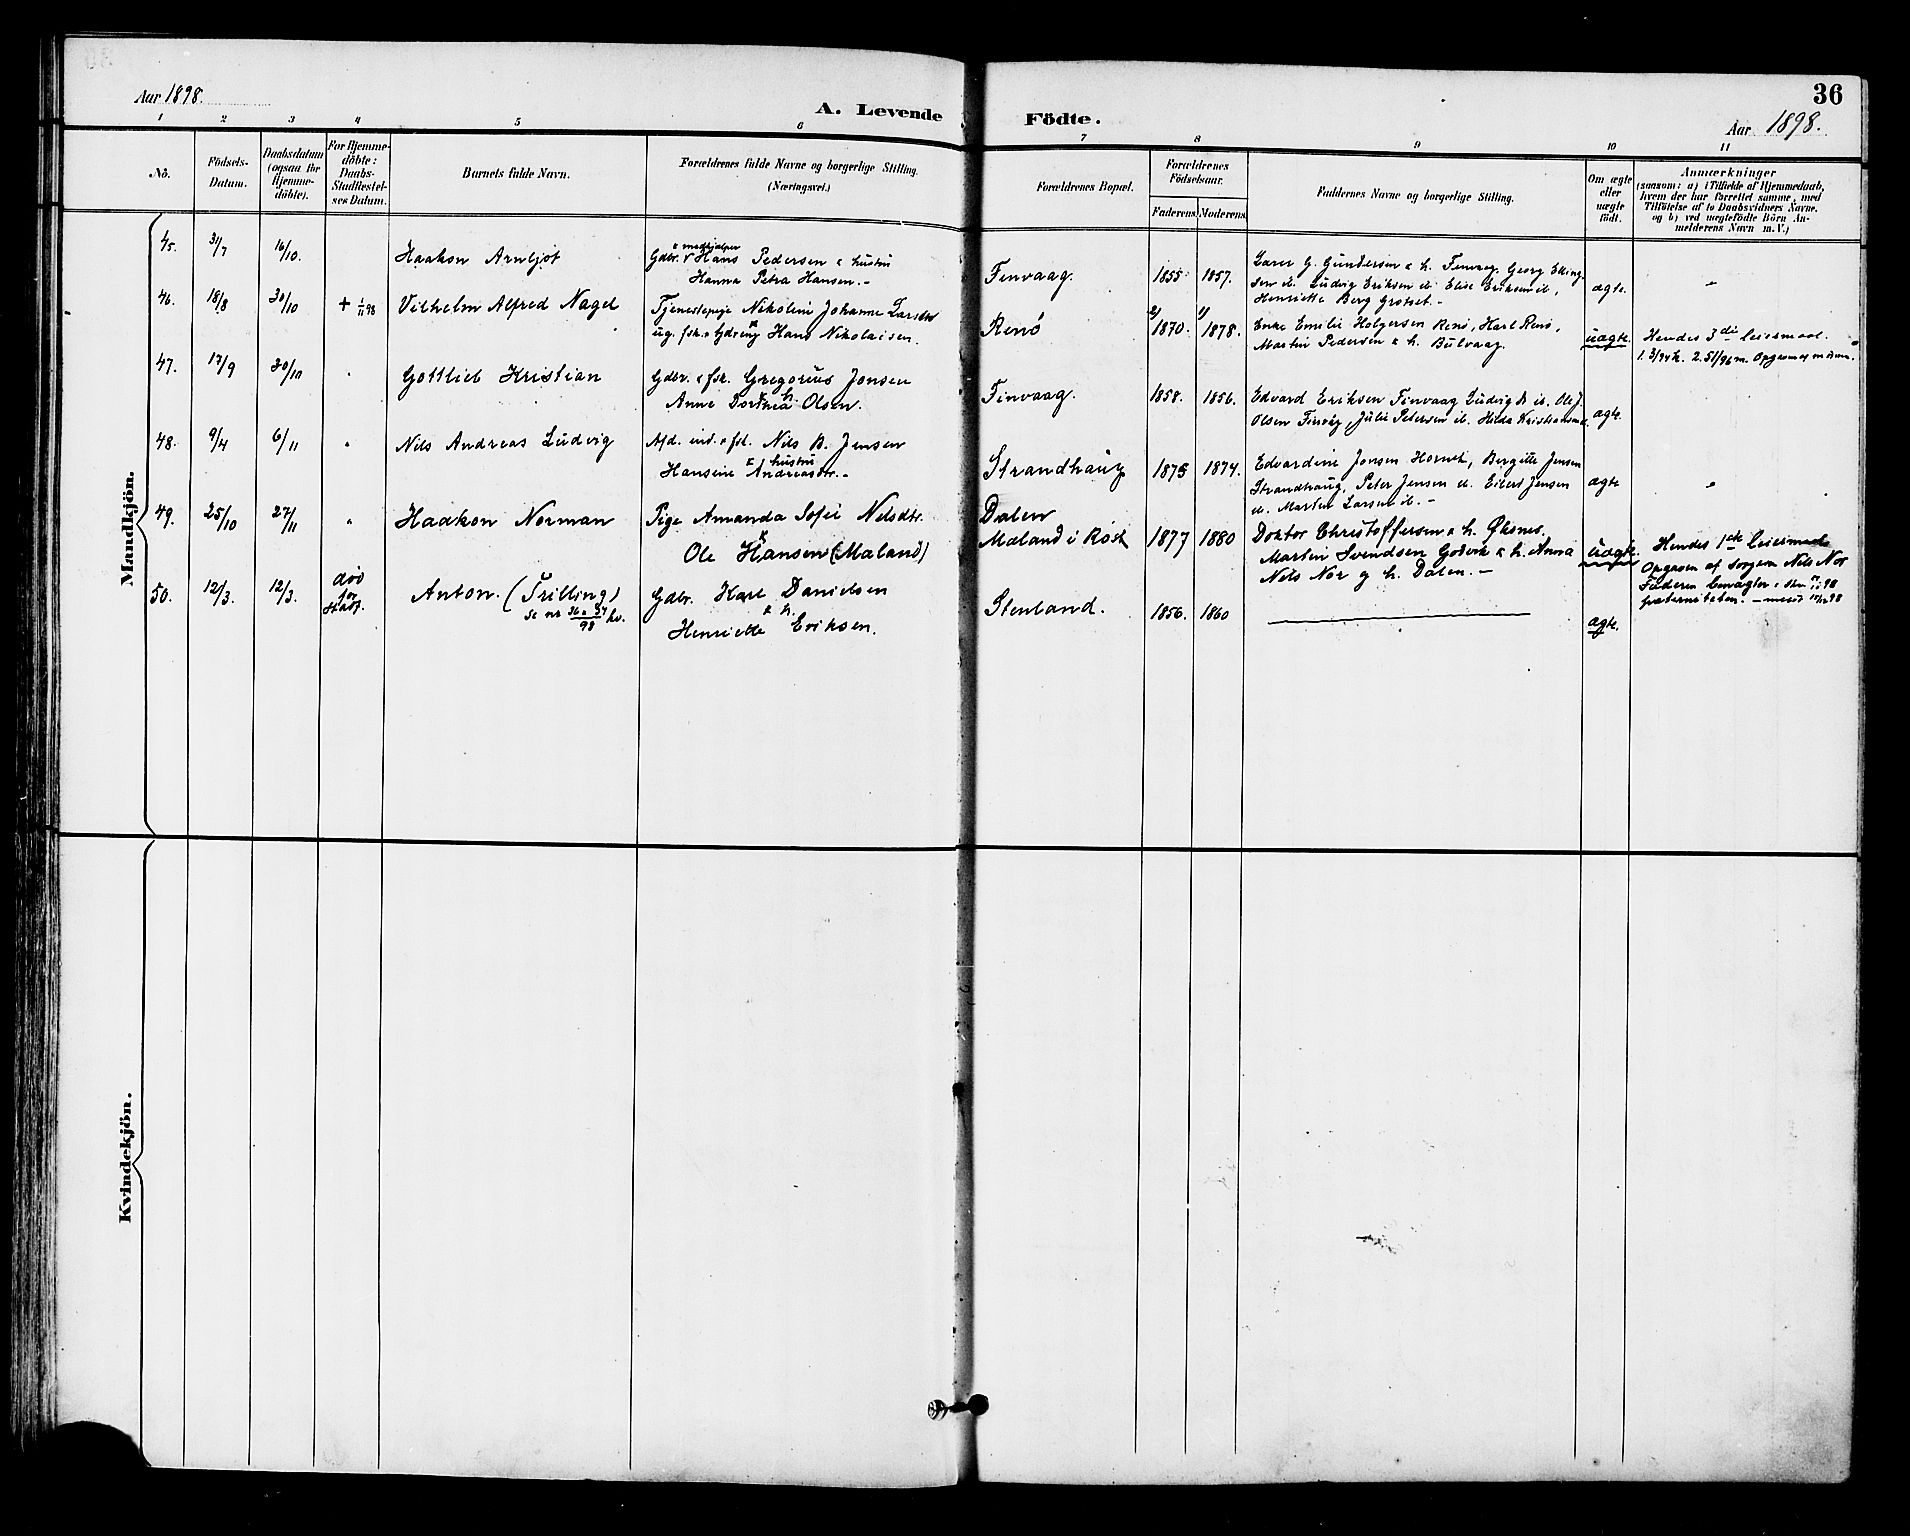 Aar 1898.
A. Levende
Födte.
36
Aar 1898.
1 2 3 4 5 6 7 8 9 10 11
Nö.
Födsels-
Datum.
Daabsdatum
(ogsaa for
Hjemme-
döbte).
For Hjemme-
döbte:
Daabs-
Stadfæstel-
ses Datum.
Barnets fulde Navn.
Forældrenes fulde Navne og borgerlige Stilling.
(Næringsvei.)
Forældrenes Bopæl.
Forældrenes
Födselsaar.
Faderens.
Moderens.
Faddernes Navne og borgerlige Stilling.
Om ægte
eller
uægte
födt.
Anmærkninger
(saasom: a) i Tilfælde af Hjemmedaab,
hvem der har forrettet samme, med
Tilföielse af to Daabsvidners Navne.
og b) ved uægtefödte Börn An-
melderens Navn m. V.)
Mandkjön.
45. 31/7 16/10. Haakon Arnljot
Gdbr. & medhjælper Hans Pedersen & hustru
Hanna Petra Hansen. -
Finvaag. 1855 1857.
Larer G. Gundersen & h. Finvaag. Georg Elling
sen ib. Ludvig Eriksen ib Elise Eriksen ib,
Henriette Berg Grötset. -
ægte. "
46. 18/8 30/10 + 1/11 98 Vilhelm Alfred Nagel
Tjenestepige Nikoline Johanne Larsdtr
&
ug. fsk. Hans Nikolaisen.
Renö 2) 1870. 1) 1878.
Enke Emilie Holgersen Renö, Karl Renö,
Martin Pedersen & h. Bulvaag.
uægte. Hendes 3die leiermaal.
47. 17/9 30/10 " Gottlieb Kristian
Gdbr. & fsk. Gregorius Jonsen
& h.
Anne Dorthea Olsen.
Finvaag. 1858. 1856.
Edvard Eriksen Finvaag Ludvig ib. Ole J.
Olsen Finvåg, Julie Petersen ib. Hilda Kristiansen
ægte.
48. 9/4 6/11 " Nils Andreas Ludvig
Afd. ind. & fsk. Nils B. Jensen
& hustru
Hansine Andreasdtr. -
Strandhaug 1875 1874.
Edvardine Jonsen Hornet, Bergitte Jensen
Strandhaug, Peter Jensen ib. Eibert Jensen
ib. Martin Larsen ib. -
ægte "
49. 25/10 27/11 " Haakon Norman
Pige Amanda Sofie Nilsdtr.
&
Ole Hansen (Maland)
Dalen
Mæland i Röst 1877 1880
Doktor Christoffersen & h. Öksnes,
Martin Svendsen Godvik & h. Anna
Nils Nor og h. Dalen. -
uægte. Hendes 1ste leiermaal
Opgaven af sorgeren Nils Nor
50. 12/3. 12/3. död for Kast. Anton. (Trilling)
se nr 36 & 37/98 kv.
Gdbr. Karl Danielsen
& h.
Henriette Eriksen.
Stenland. 1856. 1860
ægte.
Kvindekjön.